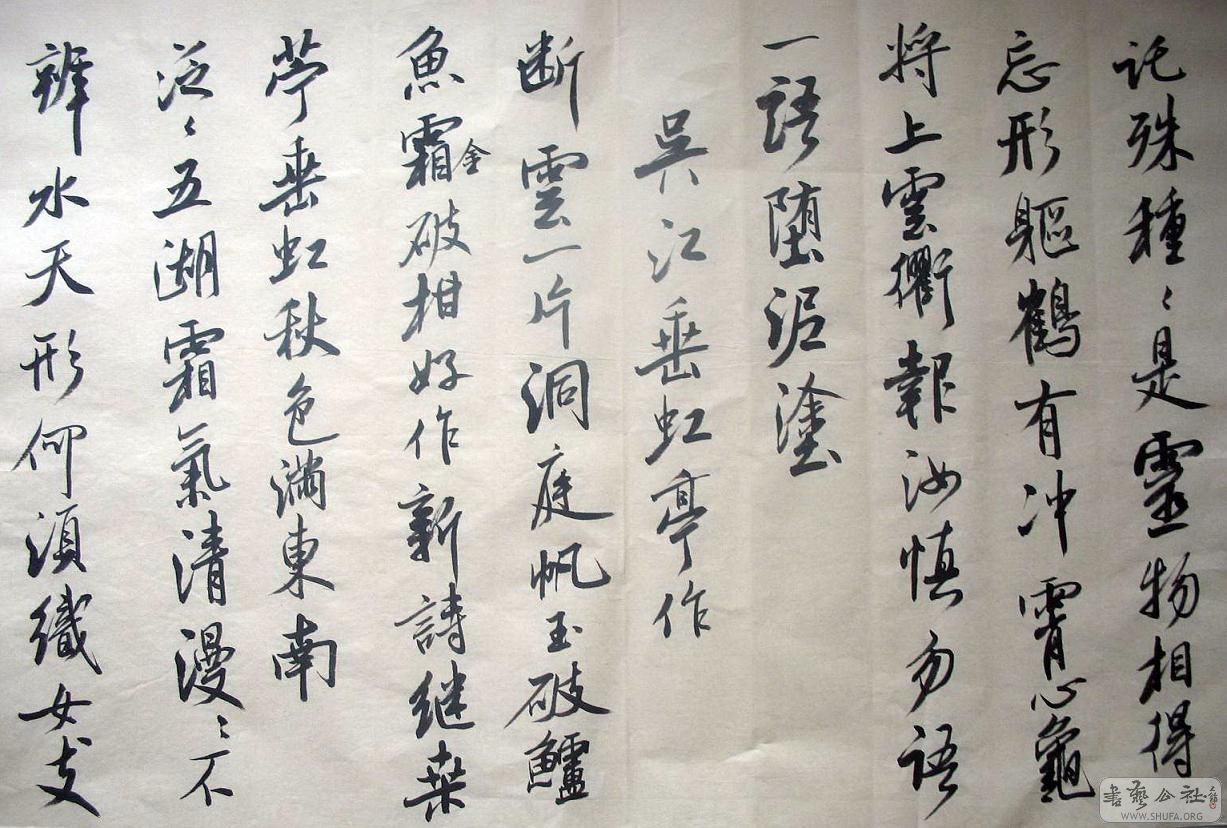 託殊種〻是靈物相得
忘形軀鶴有冲霄心龜
将上雲衢報汝慎勿語
一語堕泥塗
吳江垂虹亭作
断雲一片洞庭帆玉破鱸
魚霜破柑好作新詩继桒
金
苧垂虹秋色满東南
泛〻五湖霜氣清漫〻不
辨水天形何須織女支
書藝公社
WWW.SHUFA.ORG